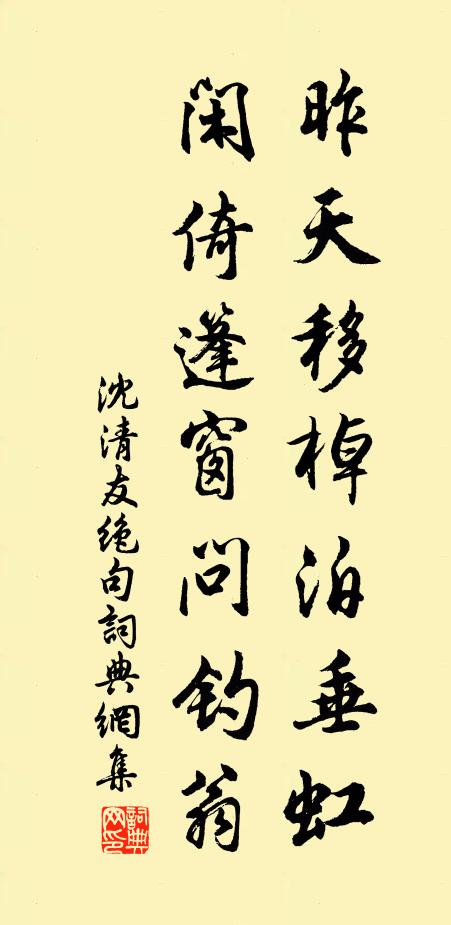 昨天移棹泊垂虹
闲倚篷窗问钓翁
沈清友绝句詞典網集
詞典网印